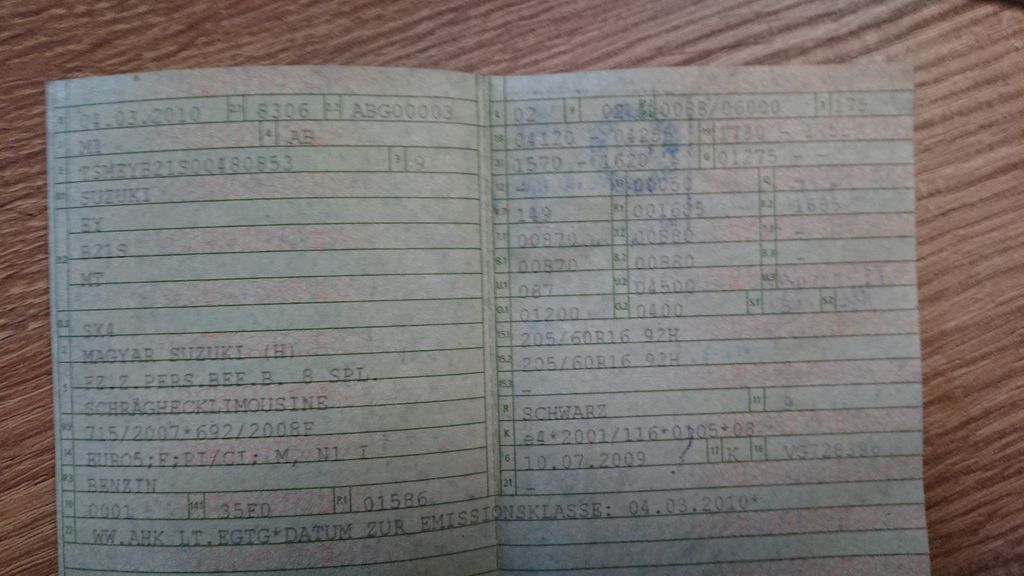 04.03.2010 2.1 8306 2.2 ABG00003
M1 4 AB
TSMEYB21S00480853 3 9
SUZUKI
EY
B21S
MT
SX4
MAGYAR SUZUKI (H)
FZ.Z.PERS.BEF.B. 8 SPL.
SCHRÄGHECKLIMOUSINE
715/2007*692/2008F
EURO5;F;PI/CI; M, N1 I
BENZIN
0001 14.1 35F0 P.1 01586
L 02 9 /06000 T 175
04120 - 1730 -
1570 - 1620 G 01275 - -
00050
149
00870 00880 -
00870 00880 -
087 04500
01200 O.2 0400
205/60R16 92H
205/60R16 92H
-
R SCHWARZ 11 9
K e4*2001/116*0105*08
6 10.07.2009 17 K 16
21 -
22 WW.AHK LT.EGTG*DATUM ZUR EMISSIONSKLASSE: 04.03.2010*